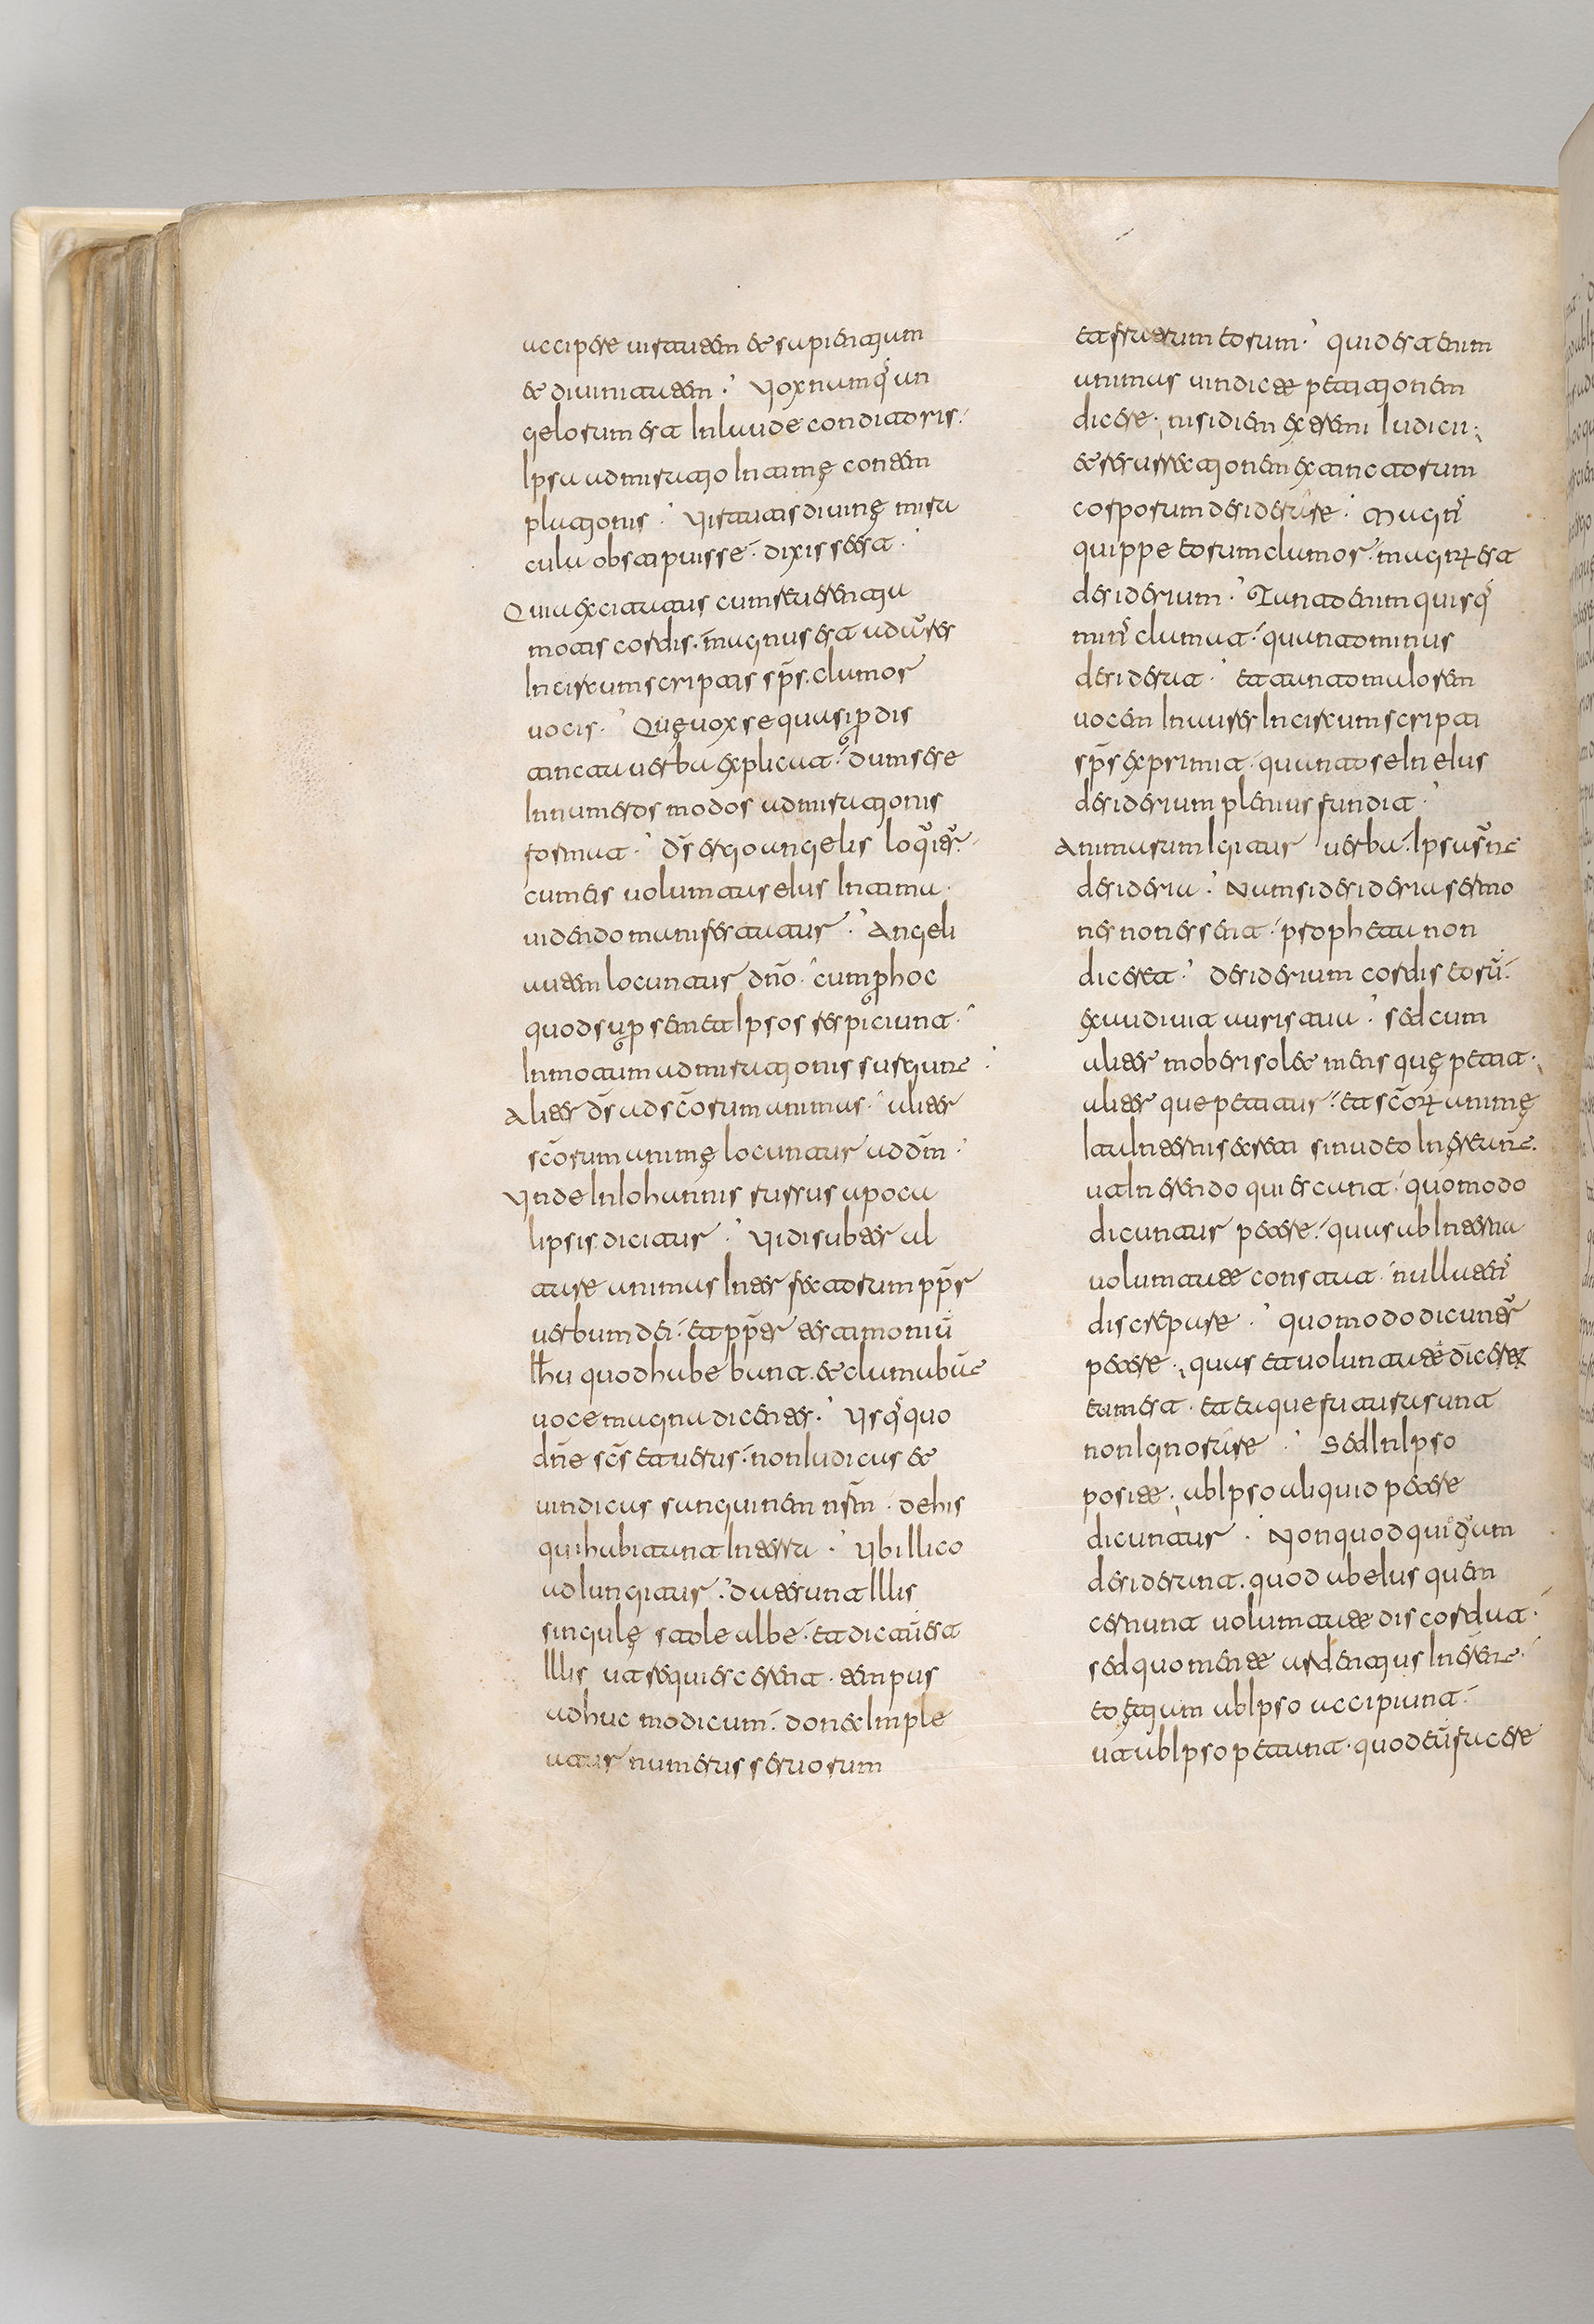 accipere uirtutem et sapientiam
et diuinitatem. Vox namq͛ an
gelorum est In laude conditoris.
Ipsa admiratio Intime̜ contem
plationis. Virtutis diuine̜ mira
cula obstipuisse. dixisse est.
Quia excitatus cum reuerentia
motus cordis. magnus est ad aures
Incircumscripti sp̄s. clamor
uocis. Que̜ uox se quasi per dis
tincta uerba explicat. dum sese
Innumeros modos admirationis
format. D̄s ergo angelis loquitur.
cum eis uolumtas eius Intima
uidendo manifestatur. Angeli
autem locuntur dn̄o. cum per hoc
quod super semet Ipsos respiciunt.
In motum admirationis surgunt.
Aliter d̄s ad sc̄orum animas. aliter
sc̄orum anime̜ locuntur ad dm̄.
Vnde In Iohannis rursus apoca
lipsis dicitur. Vidi subter al
tare animas Interfectorum pp̄r
uerbum dei. et pp̄er testimoniū
Ihu quod habebant. et clamabant
uoce magna dicentes. Vsq͛quo
dn̄e sc̄s et uerus. non Iudicas et
uindicas sanguinem nsm̄. de his
qui habitant In terra. Vbi Illico
adIungitur. date sunt Illis
singule̜ stole albe. et dictū est
Illis ut requiescerent. tempus
adhuc modicum. donec Imple
atur numerus seruorum
et fratrum eorum. quid est enim
animas uindicte petitionem
dicere. nisi diem extremi Iudicii.
et resurrectionem extinctorum
corporum desiderare. Magn͛
quippe eorum clamor. magnꝝ est
desiderium. Tanto enim quisq͛
min͛ clamat. quanto minus
desiderat. Et tanto maiorem
uocem In aures Incircumscripti
sp̄s exprimit. quanto se In eius
desiderium plenius fundit.
Animarum Igitur uerba. Ipsa sunt
desideria. Nam si desideria sermo
nes non essent. propheta non
diceret. desiderium cordis eorū.
exaudiuit auris tua. Sed cum
aliter moberi solet mens que̜ petit.
aliter que petitur. et sc̄orꝝ anime̜
Ita Internis secreti sinu deo Inhe̜reant.
ut Inerendo quiescunt. quomodo
dicuntur petere. quas ab Interna
uolumtate constat. nullaten͛
discrepare. Quomodo dicuntur
petere. quas et uoluntatē dī certꝝ
eum est. et ea que futura sunt
non Ignorare. Sed In Ipso
posite. ab Ipso aliquid petere
dicuntur. Non quod quicquam
desiderant. quod ab eius quem
cernunt uolumtate discordat.
sed quo mente ardentius Inerent.
eo etiam ab Ipso accipiunt.
ut ab Ipso petant. quod eū facere